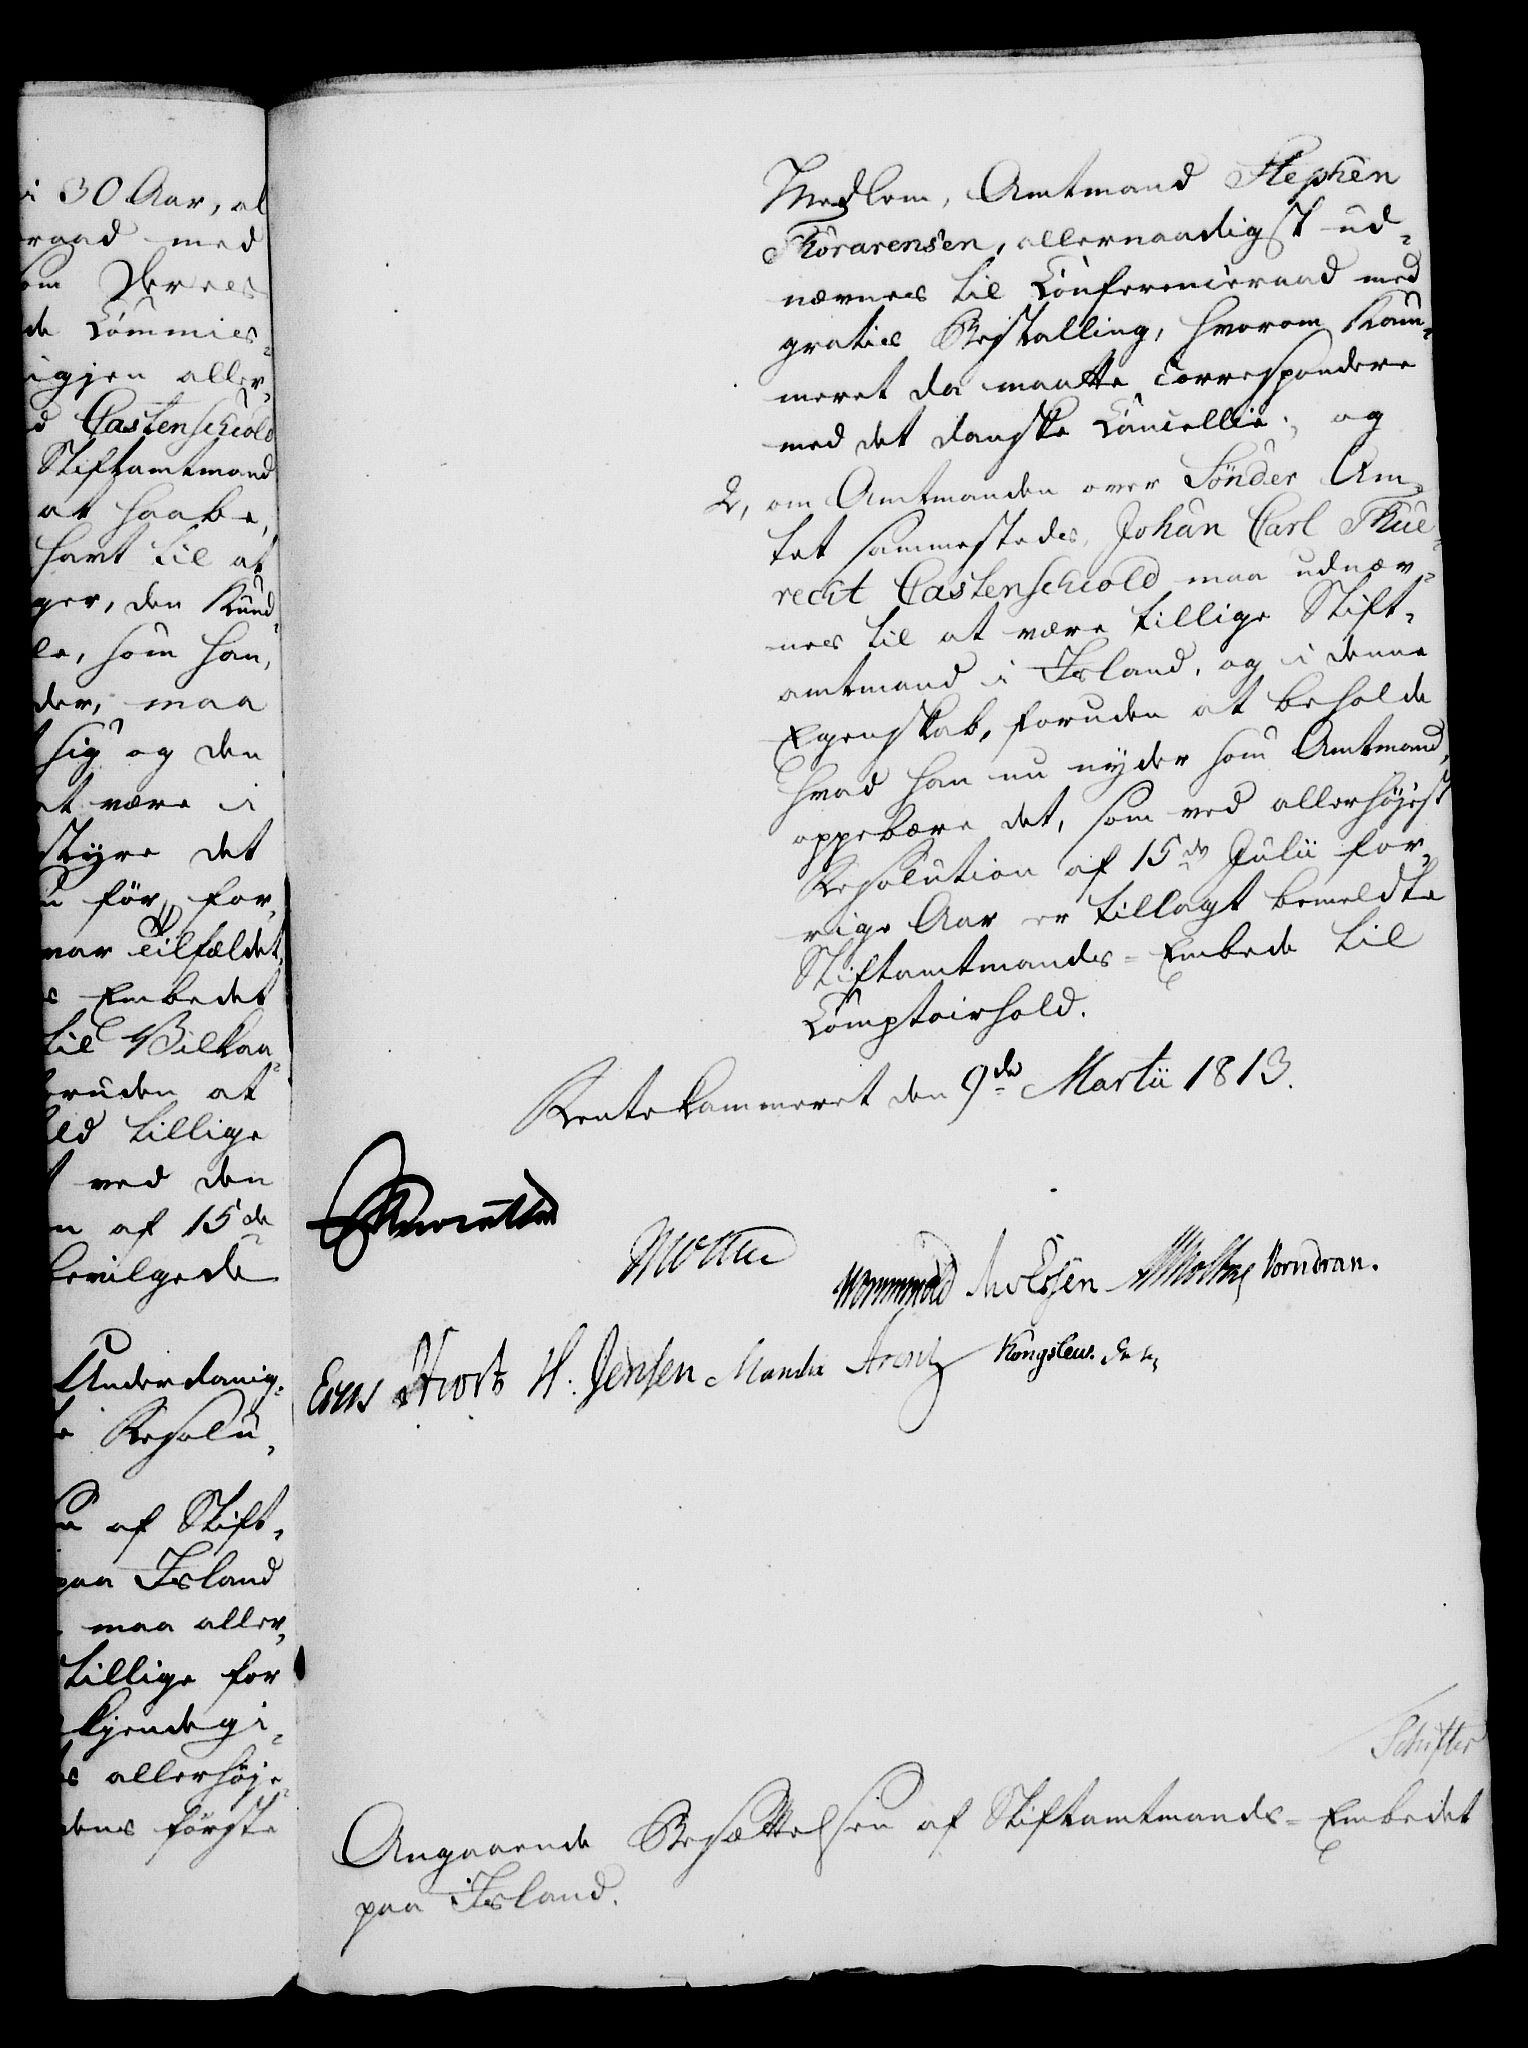 i 30 Aar, al
raad med
om Deres
de Commis-
igjen aller-
d Castenschiold
Stiftamtmand
at haabe,
havt til at
ger, den Kund-
le, som han,
der, maa
sig og den
at være i
styre det
u för, for-
var Tilfældet,
s Embedet
til Vilkaa-
foruden at
ld tillige
ved den
n af 15de
bevilgede
Underdanig-
e Resolu-
n af Stift-
paa Island
maa aller-
tillige for
kjendegi-
s allerhöje-
dens förste
Medlem, Amtmand Stephen
Thorarensen, allernaadigst ud-
nævnes til Conferenceraad med
gratis Bestalling, hvorom Kam-
meret da maatte correspondere
med det danske Cancellie; og
2, om Amtmanden over Sönder Am-
tet sammestedes, Johan Carl Thue-
recht Castenschiold maa udnæv-
nes til at være tillige Stift-
amtmand i Island, og i denne
Egenskab, foruden at beholde
hvad han nu nyder som Amtmand,
oppebære det, som ved allerhöjest
Resolution af 15de Julii for-
rige Aar er tillagt bemeldte
Stiftamtmands-Embede til
Comptoirhold.
Rentekammeret den 9de Martii 1813.
Moltke
Wormskiold Vorndran.
Hiort H. Jensen Arentz Kongslew
Schifter
Angaaende Besættelsen af Stiftamtmands-Embedet
paa Island.